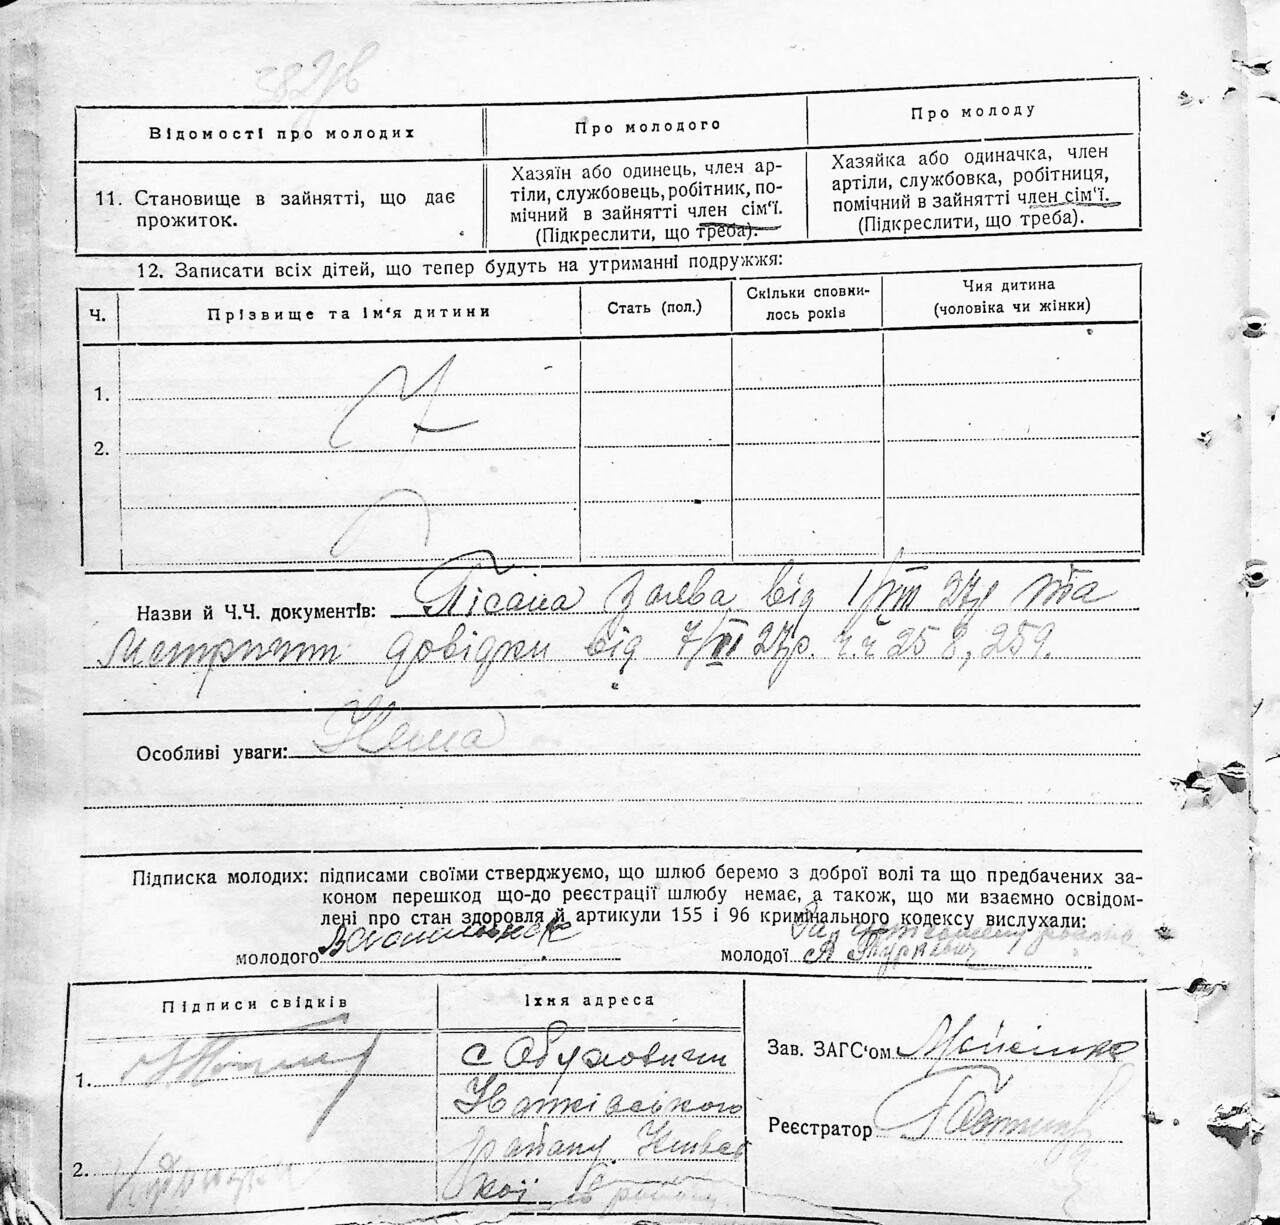 Відомості про молодих
Про молодого
Про молоду
11. Становище в зайнятті, що дає
прожиток.
Хазяїн або одинець, член ар-
тіли, службовець, робітник, по-
мічний в зайнятті член сім'ї.
(Підкреслити, що треба).
Хазяйка або одиначка, член
артіли, службовка, робітниця,
помічний в зайнятті член сім'ї.
(Підкреслити, що треба).
12. Записати всіх дітей, що тепер будуть на утриманні подружжя:
Ч.
Прізвище та ім'я дитини
Стать (пол.)
Скільки сповни-
лось років
Чия дитина
(чоловіка чи жінки)
1.
2.
Назви й Ч.Ч. документів: Пісана заява від 1/VIII 27р та
Метричні довідки від 7/III 27р. ч.ч 258, 259.
Особливі уваги: Нема
Підписка молодих: підписами своїми стверджуємо, що шлюб беремо з доброї волі та що предбачених за-
коном перешкод що-до реєстрації шлюбу немає, а також, що ми взаємно освідом-
лені про стан здоровля й артикули 155 і 96 кримінального кодексу вислухали:
молодого
молодої
Підписи свідків
Їхня адреса
1.
с Обуховичи
району
2.
Зав. ЗАГС'ом
Реєстратор